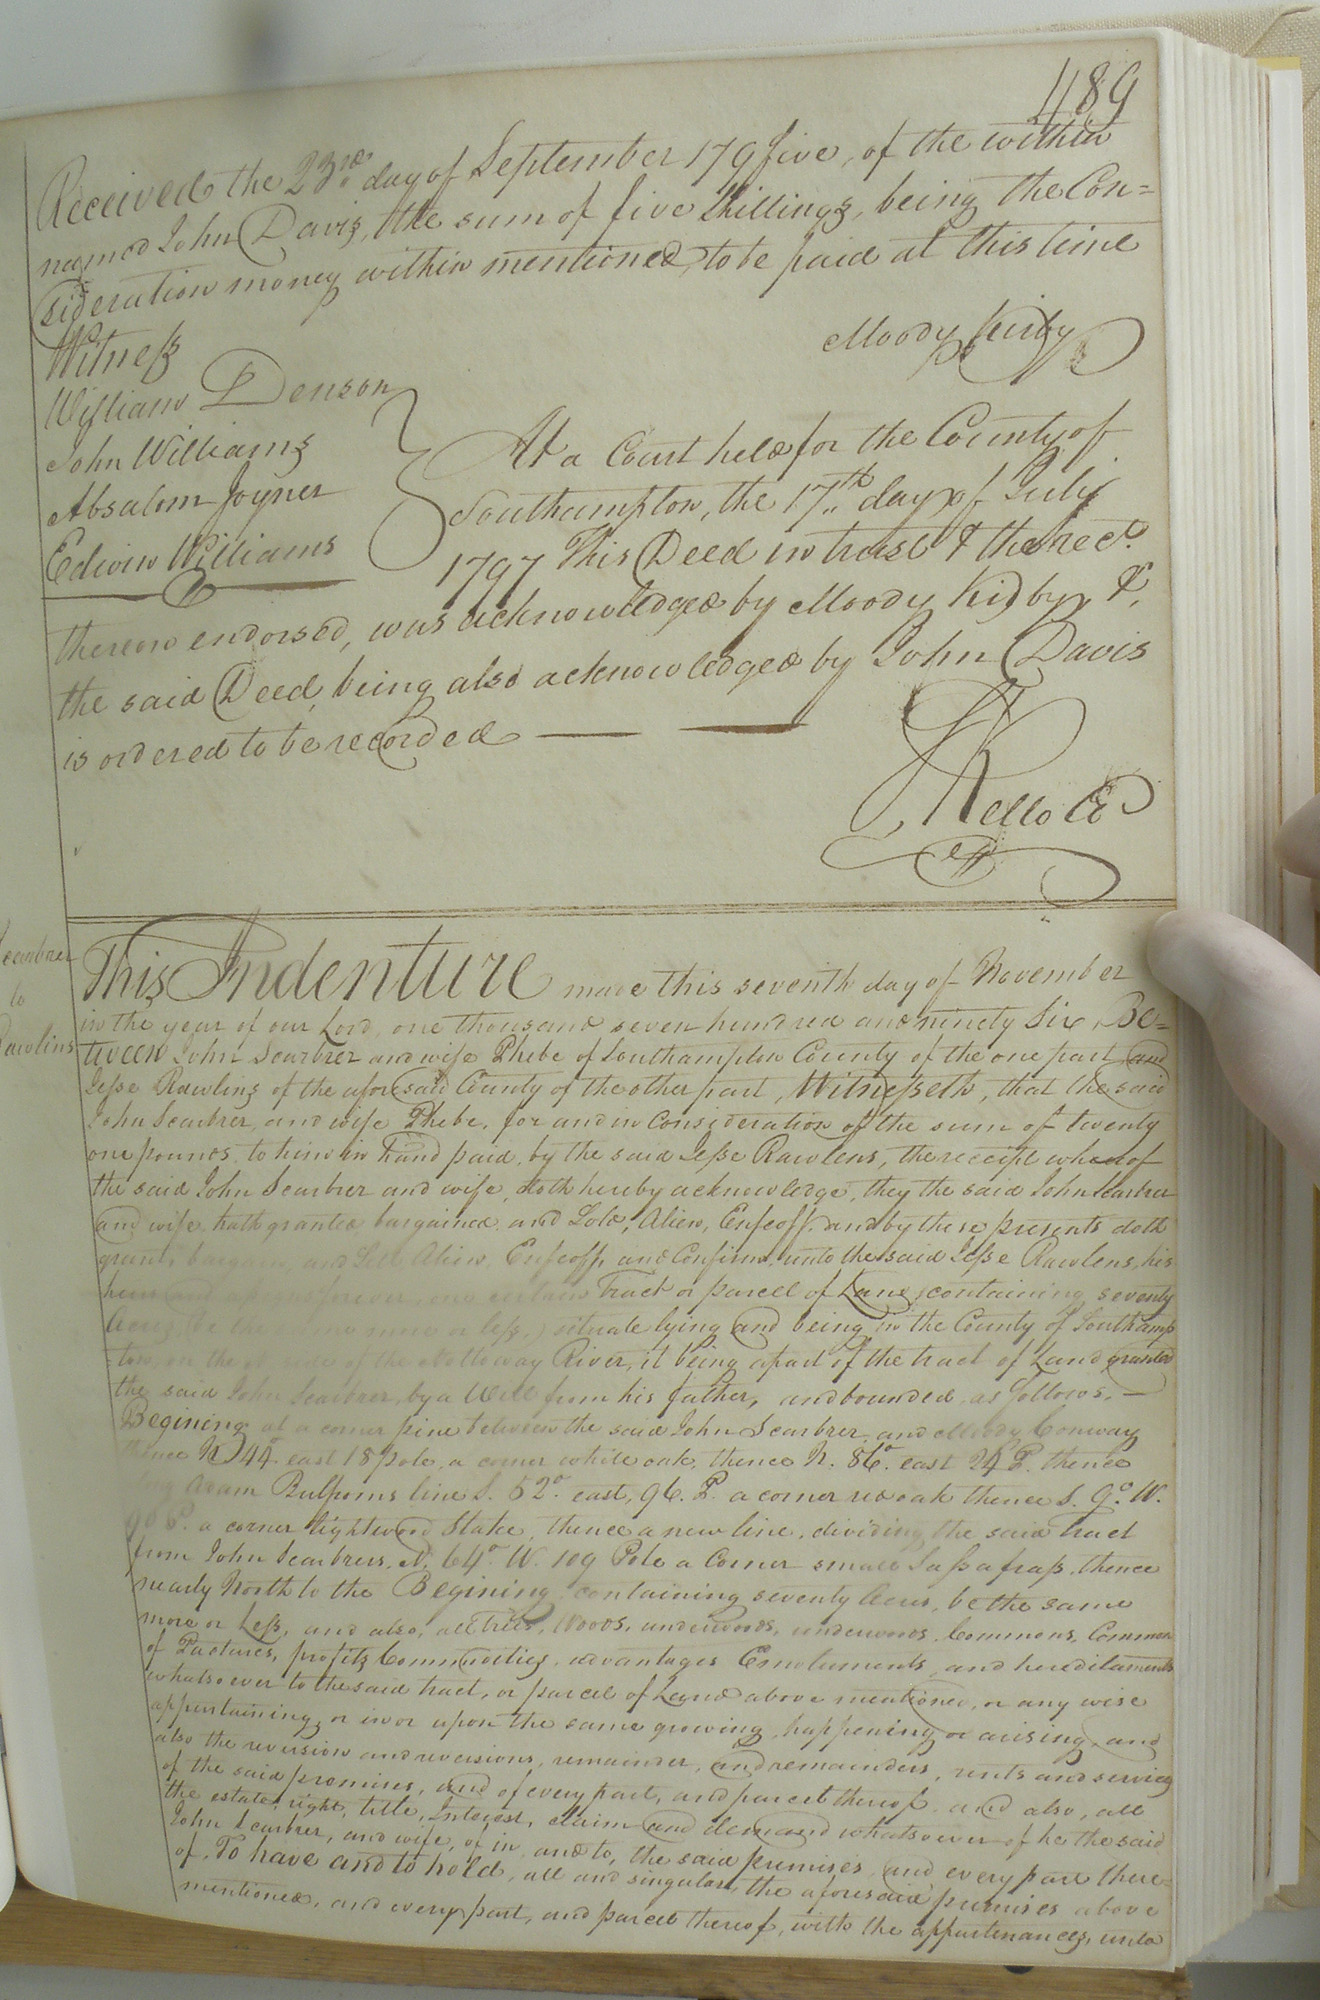 489
Received the 23rd day of September 179five, of the within
named John Davis, the sum of five shillings, being the Con=
sideration money within mentioned, to be paid at this time
Moody Kirby
Witness
William Denson
John Williams
Absalom Joyner
Edwin Williams
At a Court held for the County of
Southampton, the 17th day of July
1797 This Deed in trust & the rect.
thereon endorsed, was acknowledged by Moody Kirby &
the said Deed, being also acknowledged by John Davis
is ordered to be recorded
Kello Cl
Scarbrer
to
Rawlins
This Indenture made this seventh day of November
in the year of our Lord, one thousand seven hundred and ninety Six, Be=
tween John Scarbrer and wife Phebe of Southampton County of the one part and
Jesse Rawlins of the aforesaid County of the other part, Witnesseth, that the said
John Scarbrer, and wife Phebe, for and in Consideration of the sum of twenty
one pounds, to him in hand paid, by the said Jesse Rawlens, the receipt whereof
the said John Scarbrer and wife, doth hereby acknowledge, they the said John Scarbrer
and wife hath granted bargained and Sold, Alien, Enfeoff and by these presents doth
grant, bargain and Sell Alien, Enfeoff, and Confirm, unto the said Jesse Rawlens, his
heirs and forever, one certain Tract or parcell of Land, containing seventy
Acres, be the same more or less, situate lying and being in the County of Southamp
=ton, on the side of the Nottoway River, it being a part of the tract of Land granted
the said John Scarbrer, by a Will from his father, and bounded as follows,
Begining at a corner pine between the said John Scarbrer and Moody Conway
thence N 44° east 18 pole, a corner white oak, thence N. 86° east 24 P. thence
line S. 52° east, 96. P. a corner red oak thence S. 9° W.
90 P. a corner lightwood Stake, thence a new line, dividing the said tract
from John Scarbrers, N. 64° W. 109 Pole a Corner small Sassafrass, thence
nearly North to the Begining, containing seventy Acres, be the same
more or Less, and also, all Trees, Woods, underwoods, underwoods, Commons, Common
of Pastures, profits Commodities, advantages Emoluments, and hereditaments
whatsoever to the said tract, or parcel of Land above mentioned, or any wise
appertaining, or in or upon the same growing, happening or arising, and
also the reversion and reversions, remainder, and remainders, rents and services
of the said premises, and of every part, and parcel thereof and also, all
the estate, right, title, Interest, claim and demand whatsoever of he the said
John Scarbrer, and wife, of in, and to, the said premises and every part there=
of. To have and to hold, all and singular, the aforesaid premises above
mentioned, and every part, and parcel thereof, with the appurtenances, unto